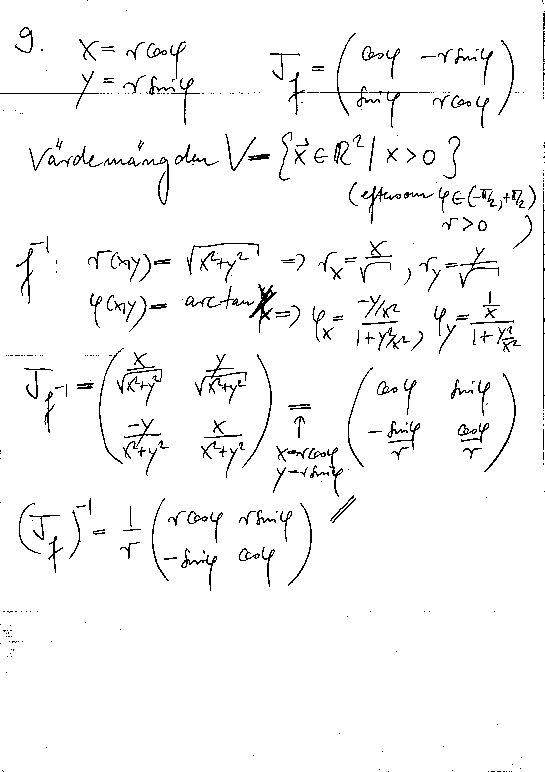 9.
x = r cosφ
y = r sinφ
J_f = ( cosφ  -r sinφ ; sinφ  r cosφ )
Värdemängden V = { x⃗ ∈ ℝ² | x > 0 }
(eftersom φ ∈ (-π/2, +π/2)
r > 0 )
f⁻¹: r(x,y) = √(x²+y²) => r_x = x/√ , r_y = y/√
φ(x,y) = arctan y/x => φ_x = (-y/x²)/(1+y²/x²), φ_y = (1/x)/(1+y²/x²)
J_f⁻¹ = ( x/√(x²+y²)  y/√(x²+y²) ; -y/(x²+y²)  x/(x²+y²) ) = ( cosφ  sinφ ; -sinφ/r  cosφ/r )
↑
x=r cosφ
y=r sinφ
(J_f)⁻¹ = 1/r ( r cosφ  r sinφ ; -sinφ  cosφ ) //